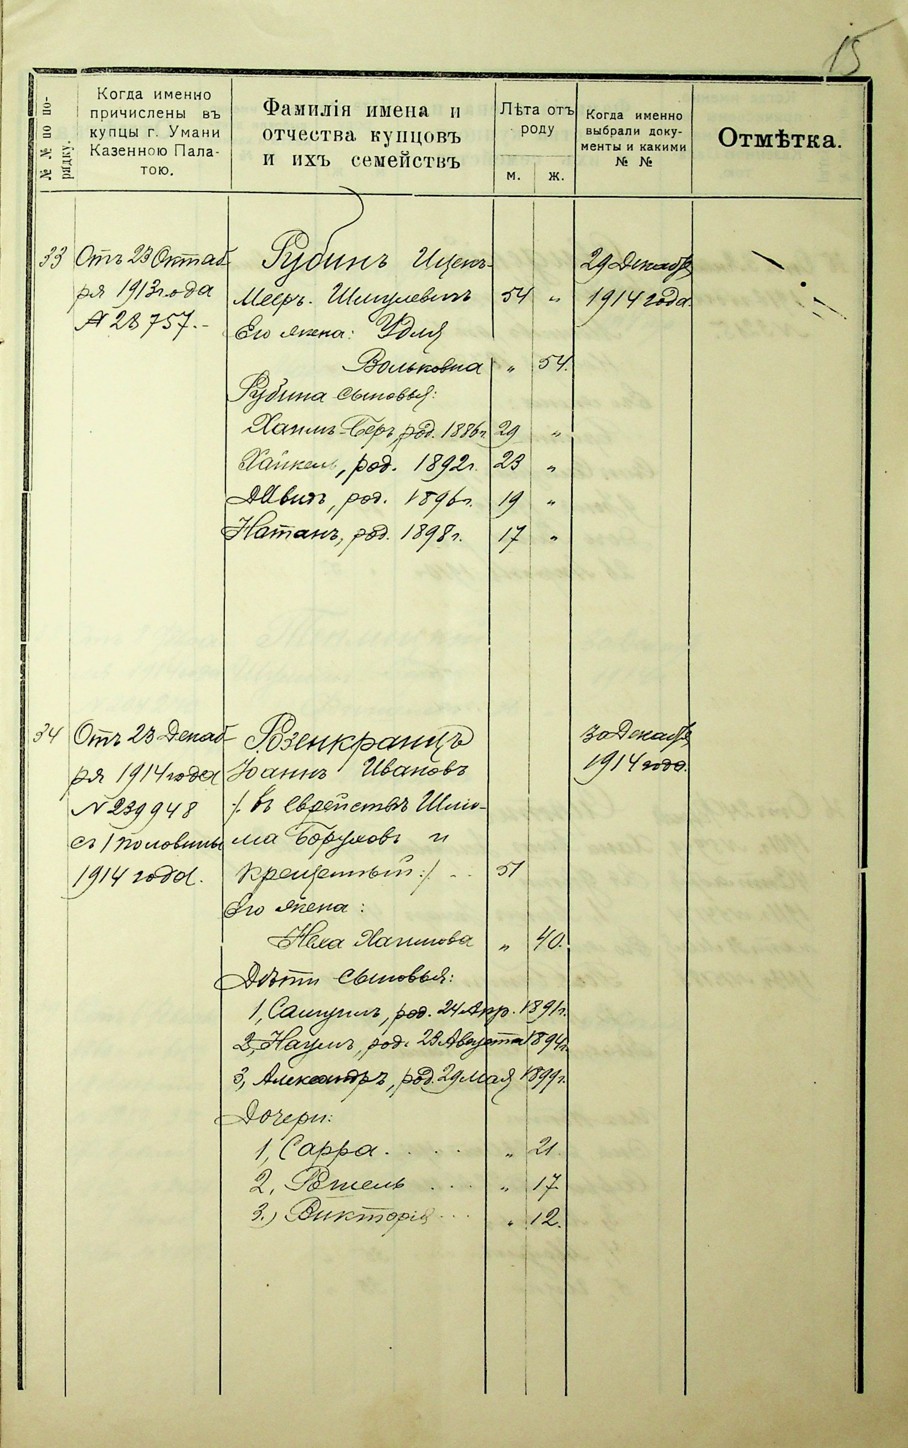 15
№ № по по-
рядку.
Когда именно
причислены въ
купцы г. Умани
Казенною Пала-
тою.
Фамилія имена и
отчества купцовъ
и ихъ семействъ
Лѣта отъ
роду
м. ж.
Когда именно
выбрали доку-
менты и какими
№ №
Отмѣтка.
33 Отъ 23 Октяб- Рубинъ Ицекъ- 29 Декабря
ря 1913 года Мееръ Шмулевичъ 54 „ 1914 года.
№ 28757.- Его жена: Удля
Вольковна „ 54.
Рубина сыновья:
Хаимъ-Беръ, род. 1886 г. 29 „
Хайкель, род. 1892 г. 23 „
Давидъ, род. 1896 г. 19 „
Натанъ, род. 1898 г. 17 „
34 Отъ 23 Декаб- Розенкранцъ 30 Декабря
ря 1914 года Іоаннъ Ивановъ 1914 года.
№ 239948 /: въ еврействѣ Шлио-
съ 1 половины ма Боруховъ и
1914 года. крещенный :/ - - 51
Его жена:
Неха Хаимова „ 40.
Дѣти сыновья:
1, Самуилъ, род. 24 Апр. 1891 г.
2, Наумъ, род. 23 Августа 1894 г.
3, Александръ, род. 29 Мая 1899 г.
Дочери:
1, Сарра . . . . „ 21
2, Рѣшель . . . „ 17
3.) Викторія . . . „ 12.